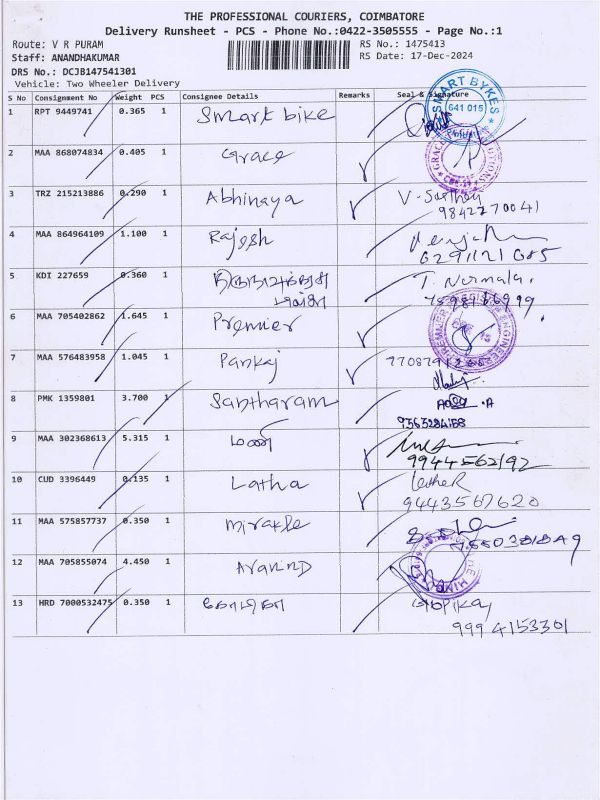 THE PROFESSIONAL COURIERS, COIMBATORE
Delivery Runsheet - PCS - Phone No.:0422-3505555 - Page No.:1
Route: V R PURAM RS No.: 1475413
Staff: ANANDHAKUMAR RS Date: 17-Dec-2024
DRS No.: DCJB147541301
Vehicle: Two Wheeler Delivery
S No Consignment No Weight PCS Consignee Details Remarks Seal & Signature
SMART BYKES
641 015
1 RPT 9449741 0.365 1 Smart bike
2 MAA 868074834 0.405 1 Grace
GRACE
3 TRZ 215213886 0.290 1 Abhinaya
9842270041
4 MAA 864964109 1.100 1 Rajesh
5 KDI 227659 0.360 1
T. Nirmala
6 MAA 705402862 1.645 1 Premier
PREMIER ENGINEERS
7 MAA 576483958 1.045 1 Pankaj
8 PMK 1359801 3.700 1 Santharam
9 MAA 302368613 5.315 1 மணி
9944562192
10 CUD 3396449 0.135 1 Latha
9443567620
11 MAA 575857737 0.350 1 mirakle
12 MAA 705855074 4.450 1 Aravind
13 HRD 7000532475 0.350 1 Gopika
9994153301